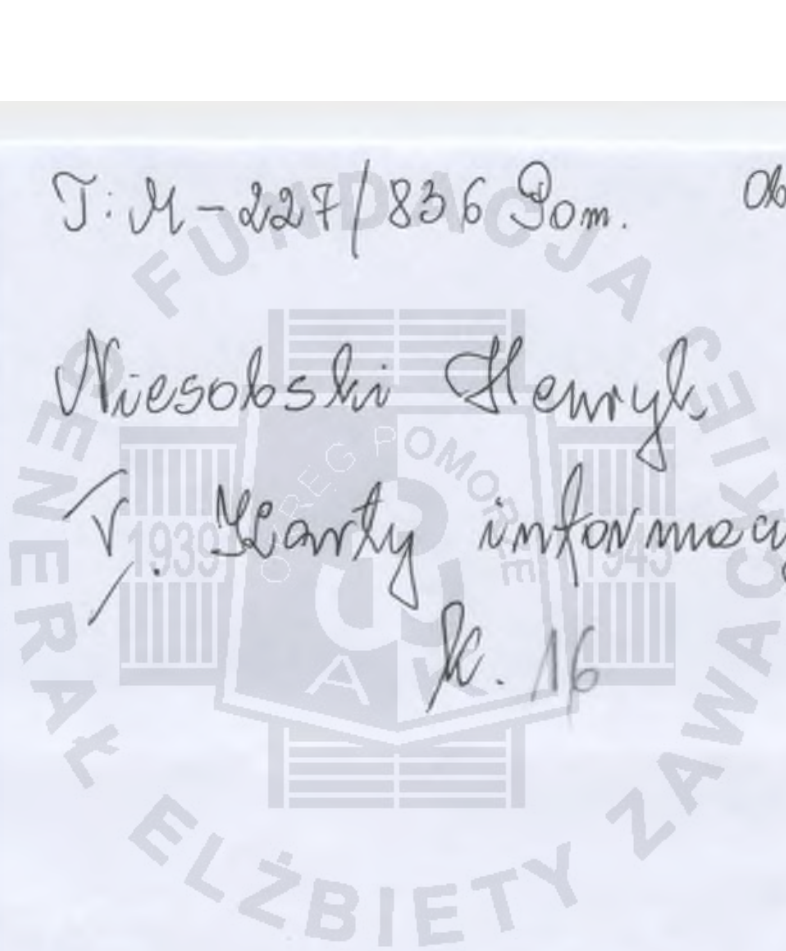 T: M-227/836 Pom. Ob
Niesobski Henryk
V. Karty informacy
k. 16
FUNDACJA
GENERAŁ ELŻBIETY ZAWACKIEJ
OKRĘG POMORZE
1939 1945
AK